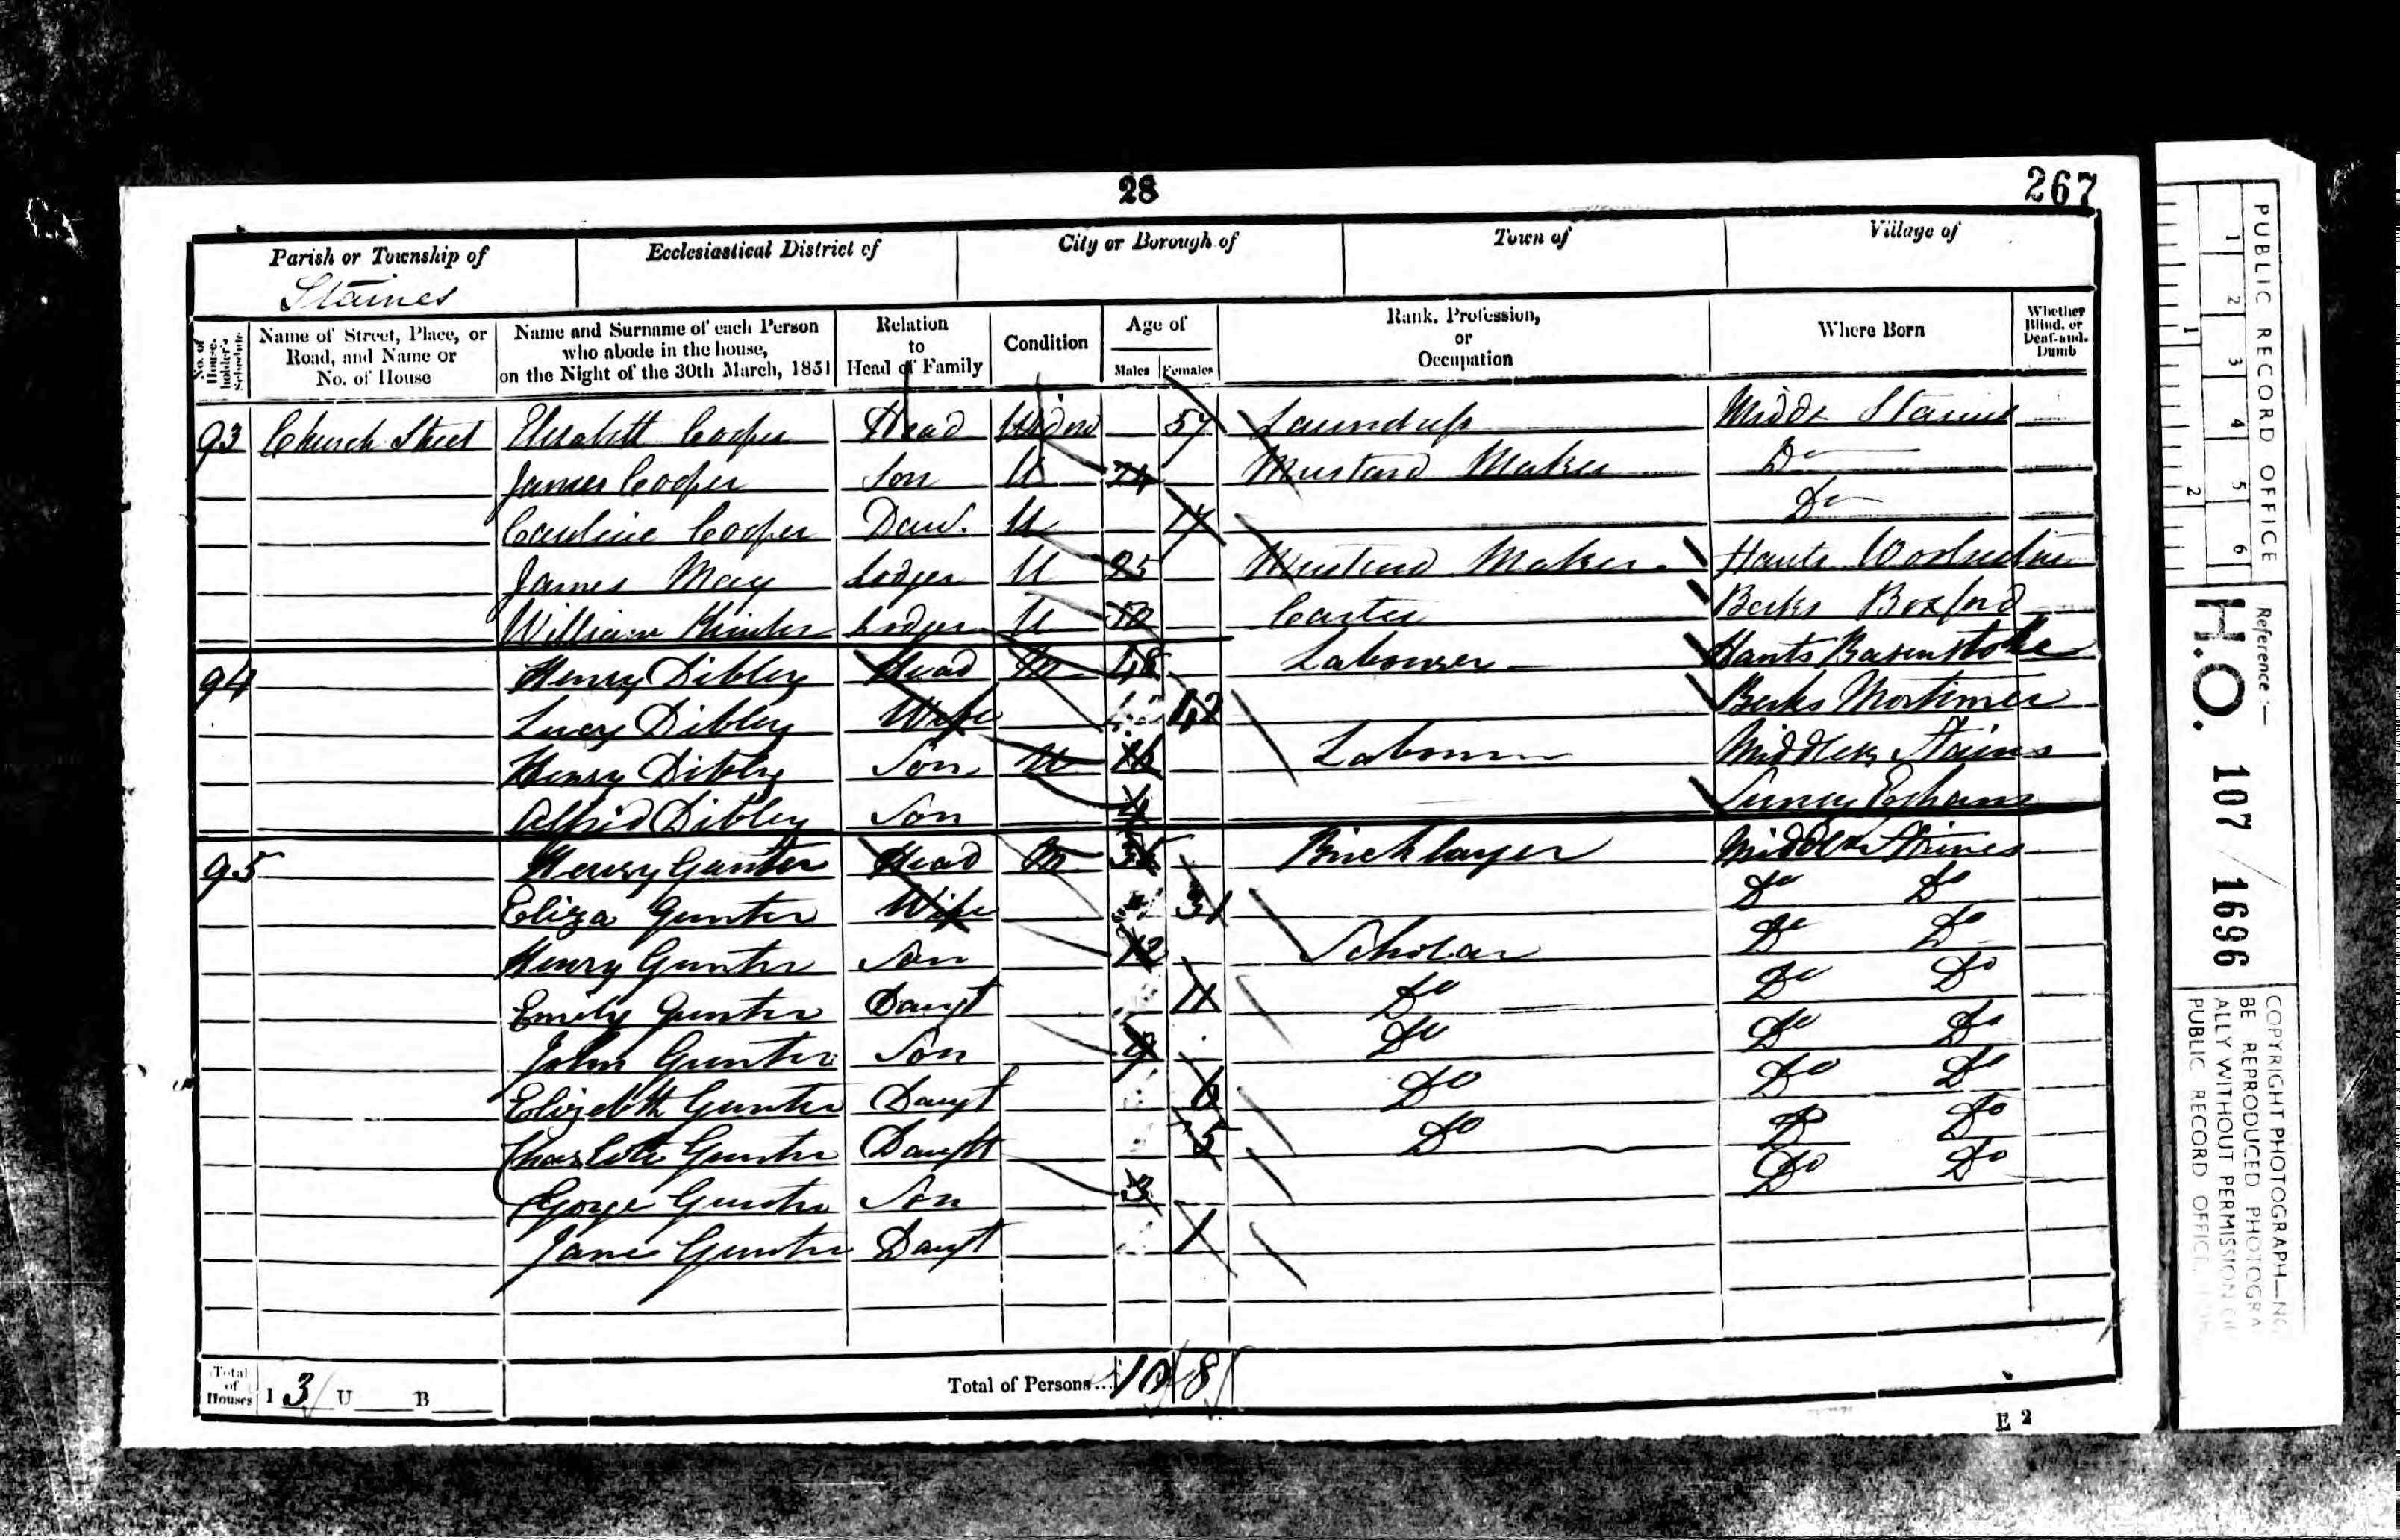 28
267
Parish or Township of
Ecclesiastical District of
City or Borough of
Town of
Village of
Staines
No. of House-holder's Schedule
Name of Street, Place, or Road, and Name or No. of House
Name and Surname of each Person who abode in the house, on the Night of the 30th March, 1851
Relation to Head of Family
Condition
Age of
Males
Females
Rank, Profession, or Occupation
Where Born
Whether Blind, or Deaf-and-Dumb
93 Church Street Elizabeth Cooper Head Widow 57 Laundress Middx Staines
James Cooper Son U 24 Mustard Maker Do
Caroline Cooper Daur. U 17 Do
James May Lodger U 25 Mustard Maker Hants
William Kimber Lodger U Carter Berks Boxford
94 Henry Dibley Head M 48 Labourer Hants Basinstoke
Lucy Dibley Wife 42 Berks Mortimer
Henry Dibley Son U 16 Labourer Middlex Stains
Alfrid Dibley Son 4 Surrey Egham
95 Henry Gunter Head M Bricklayer Middlex Staines
Eliza Gunter Wife 31 Do Do
Henry Gunter Son 12 Scholar Do Do
Emily Gunter Daugt 11 Do Do Do
John Gunter Son 9 Do Do Do
Elizebth Gunter Daugt 6 Do Do Do
Charlote Gunter Daught 5 Do Do Do
Gorge Gunter Son 3 Do Do
Jane Gunter Daugt 1
Total of Houses I 3 U B Total of Persons... 10 8
E 2
PUBLIC RECORD OFFICE
1 2 3 4 5 6
1 2
Reference :—
H.O. 107 / 1696
COPYRIGHT PHOTOGRAPH—NO
BE REPRODUCED PHOTOGRA
ALLY WITHOUT PERMISSION OF
PUBLIC RECORD OFFICE